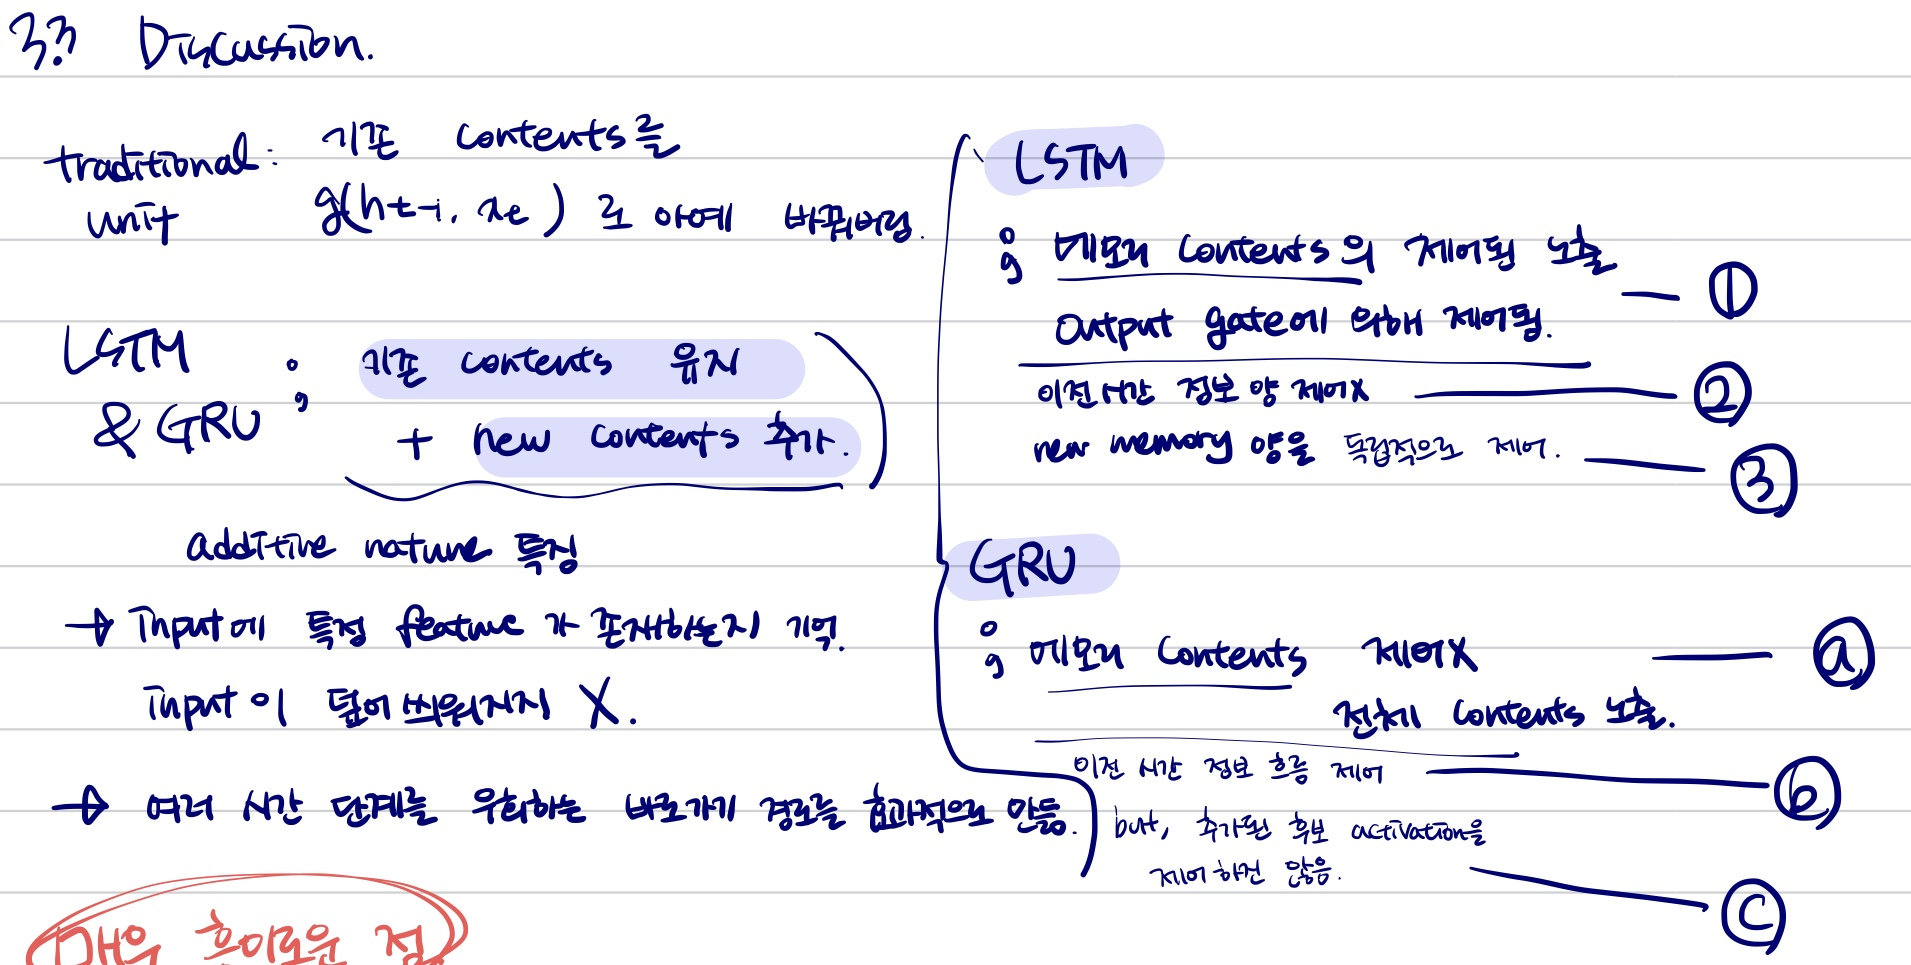 3.3 Discussion.
traditional unit : 기존 contents를
g(ht-1, xt) 로 아예 바꿔버림.
LSTM & GRU ; 기존 contents 유지
+ new contents 추가.
additive nature 특징
→ Input에 특정 feature 가 존재하는지 기억.
Input이 덮어 씌워지지 X.
→ 여러 시간 단계를 우회하는 바로가기 경로를 효과적으로 만듦.
매우 흥미로운 점
LSTM
; 메모리 contents의 제어된 노출 — ①
output gate에 의해 제어됨.
이전시간 정보 양 제어X — ②
new memory 양을 독립적으로 제어. — ③
GRU
; 메모리 contents 제어X — ⓐ
전체 contents 노출.
이전 시간 정보 흐름 제어 — ⓑ
but, 추가된 후보 activation을
제어하진 않음. — ⓒ